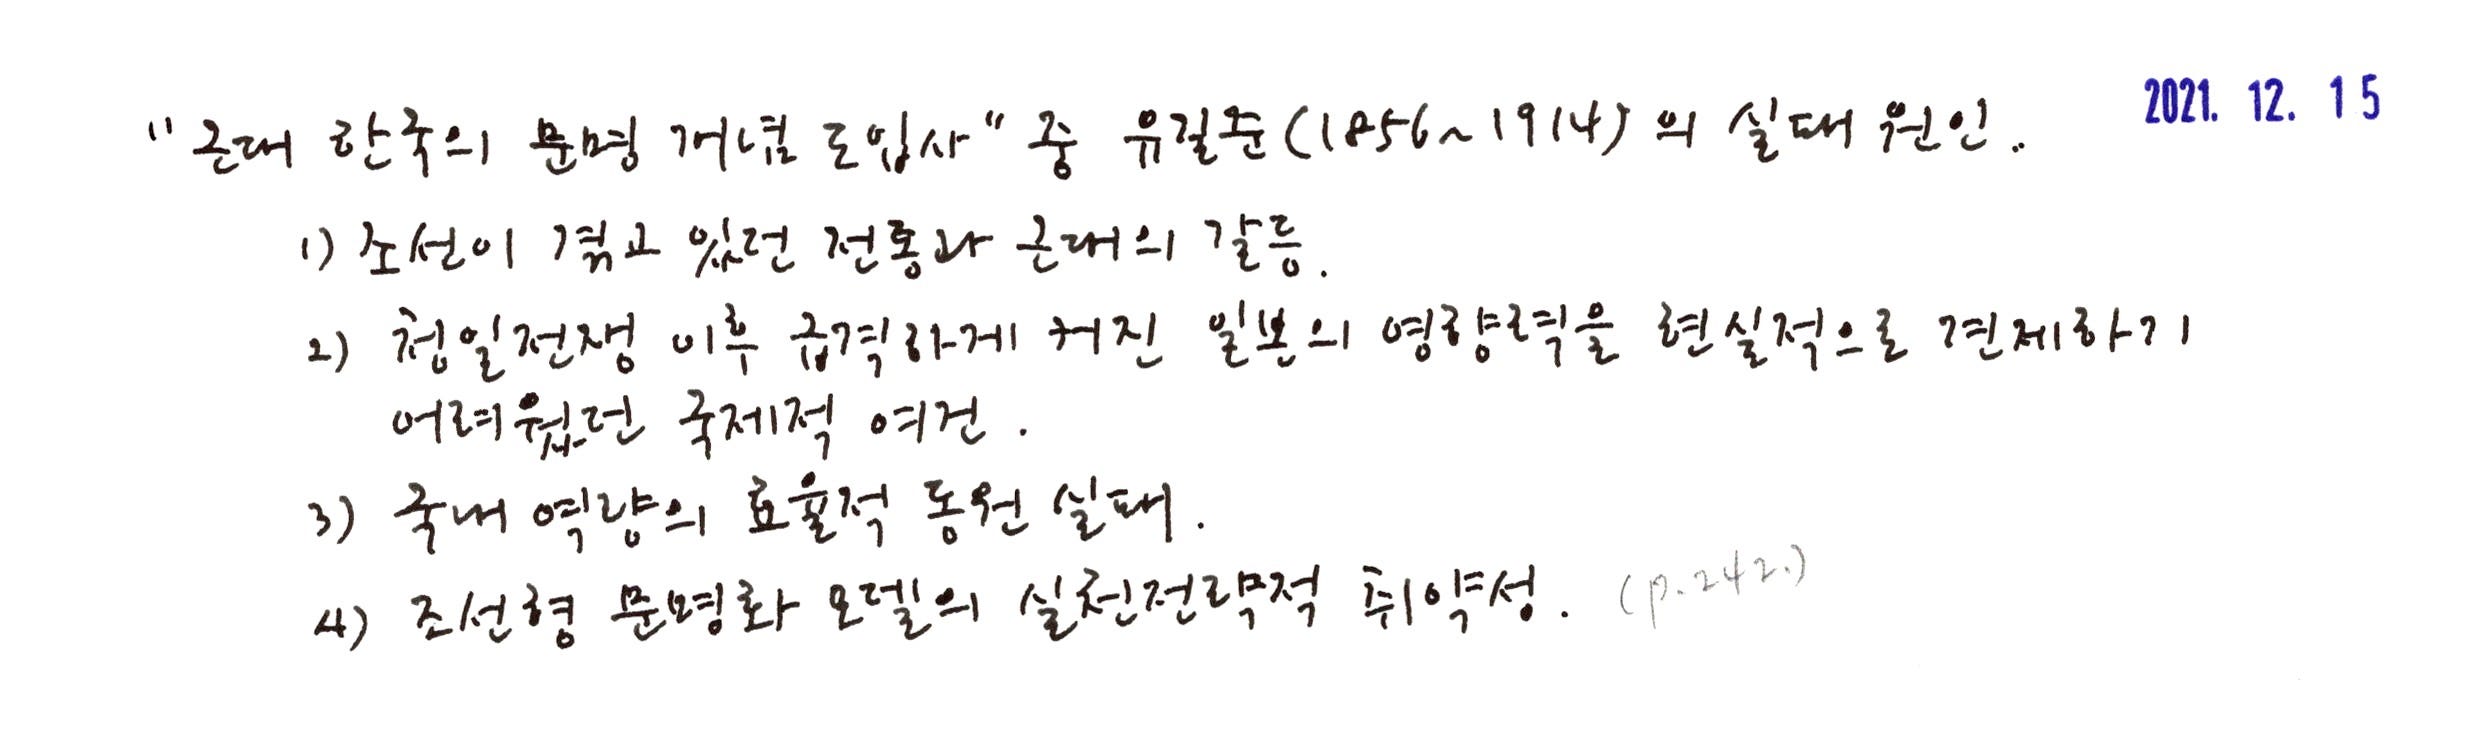 2021. 12. 15
"근대 한국의 문명 개념 도입사" 중 유길준(1856~1914)의 실패 원인.
1) 조선이 겪고 있던 전통과 근대의 갈등.
2) 청일전쟁 이후 급격하게 커진 일본의 영향력을 현실적으로 견제하기
어려웠던 국제적 여건.
3) 국내 역량의 효율적 동원 실패.
4) 조선형 문명화 모델의 실천전략적 취약성. (p.242.)